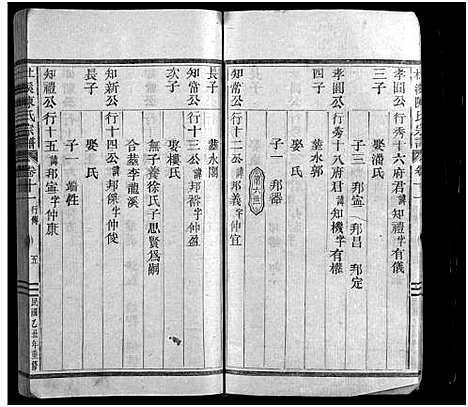 陳氏宗譜 卷十一
孝圓公行秀十六府君諱知禮有儀
三子 娶潘氏
子三 邦寔 邦昌 邦定
孝圓公行秀十八府君諱知機有權
四子 葬水郭
子一 邦器
知常公行十二公諱邦義字仲宜
長子 葬水閣
知常公行十三公諱邦和字仲盈
次子 娶樓氏
無子養徐氏子思賢為嗣
合葬李龍溪
知新公行十四公諱邦傑字仲俊
長子 娶氏
子一 端性
知禮公行十五諱邦寔字仲康
杜溪陳氏宗譜 卷十一 行傳 五 民國乙丑年重修